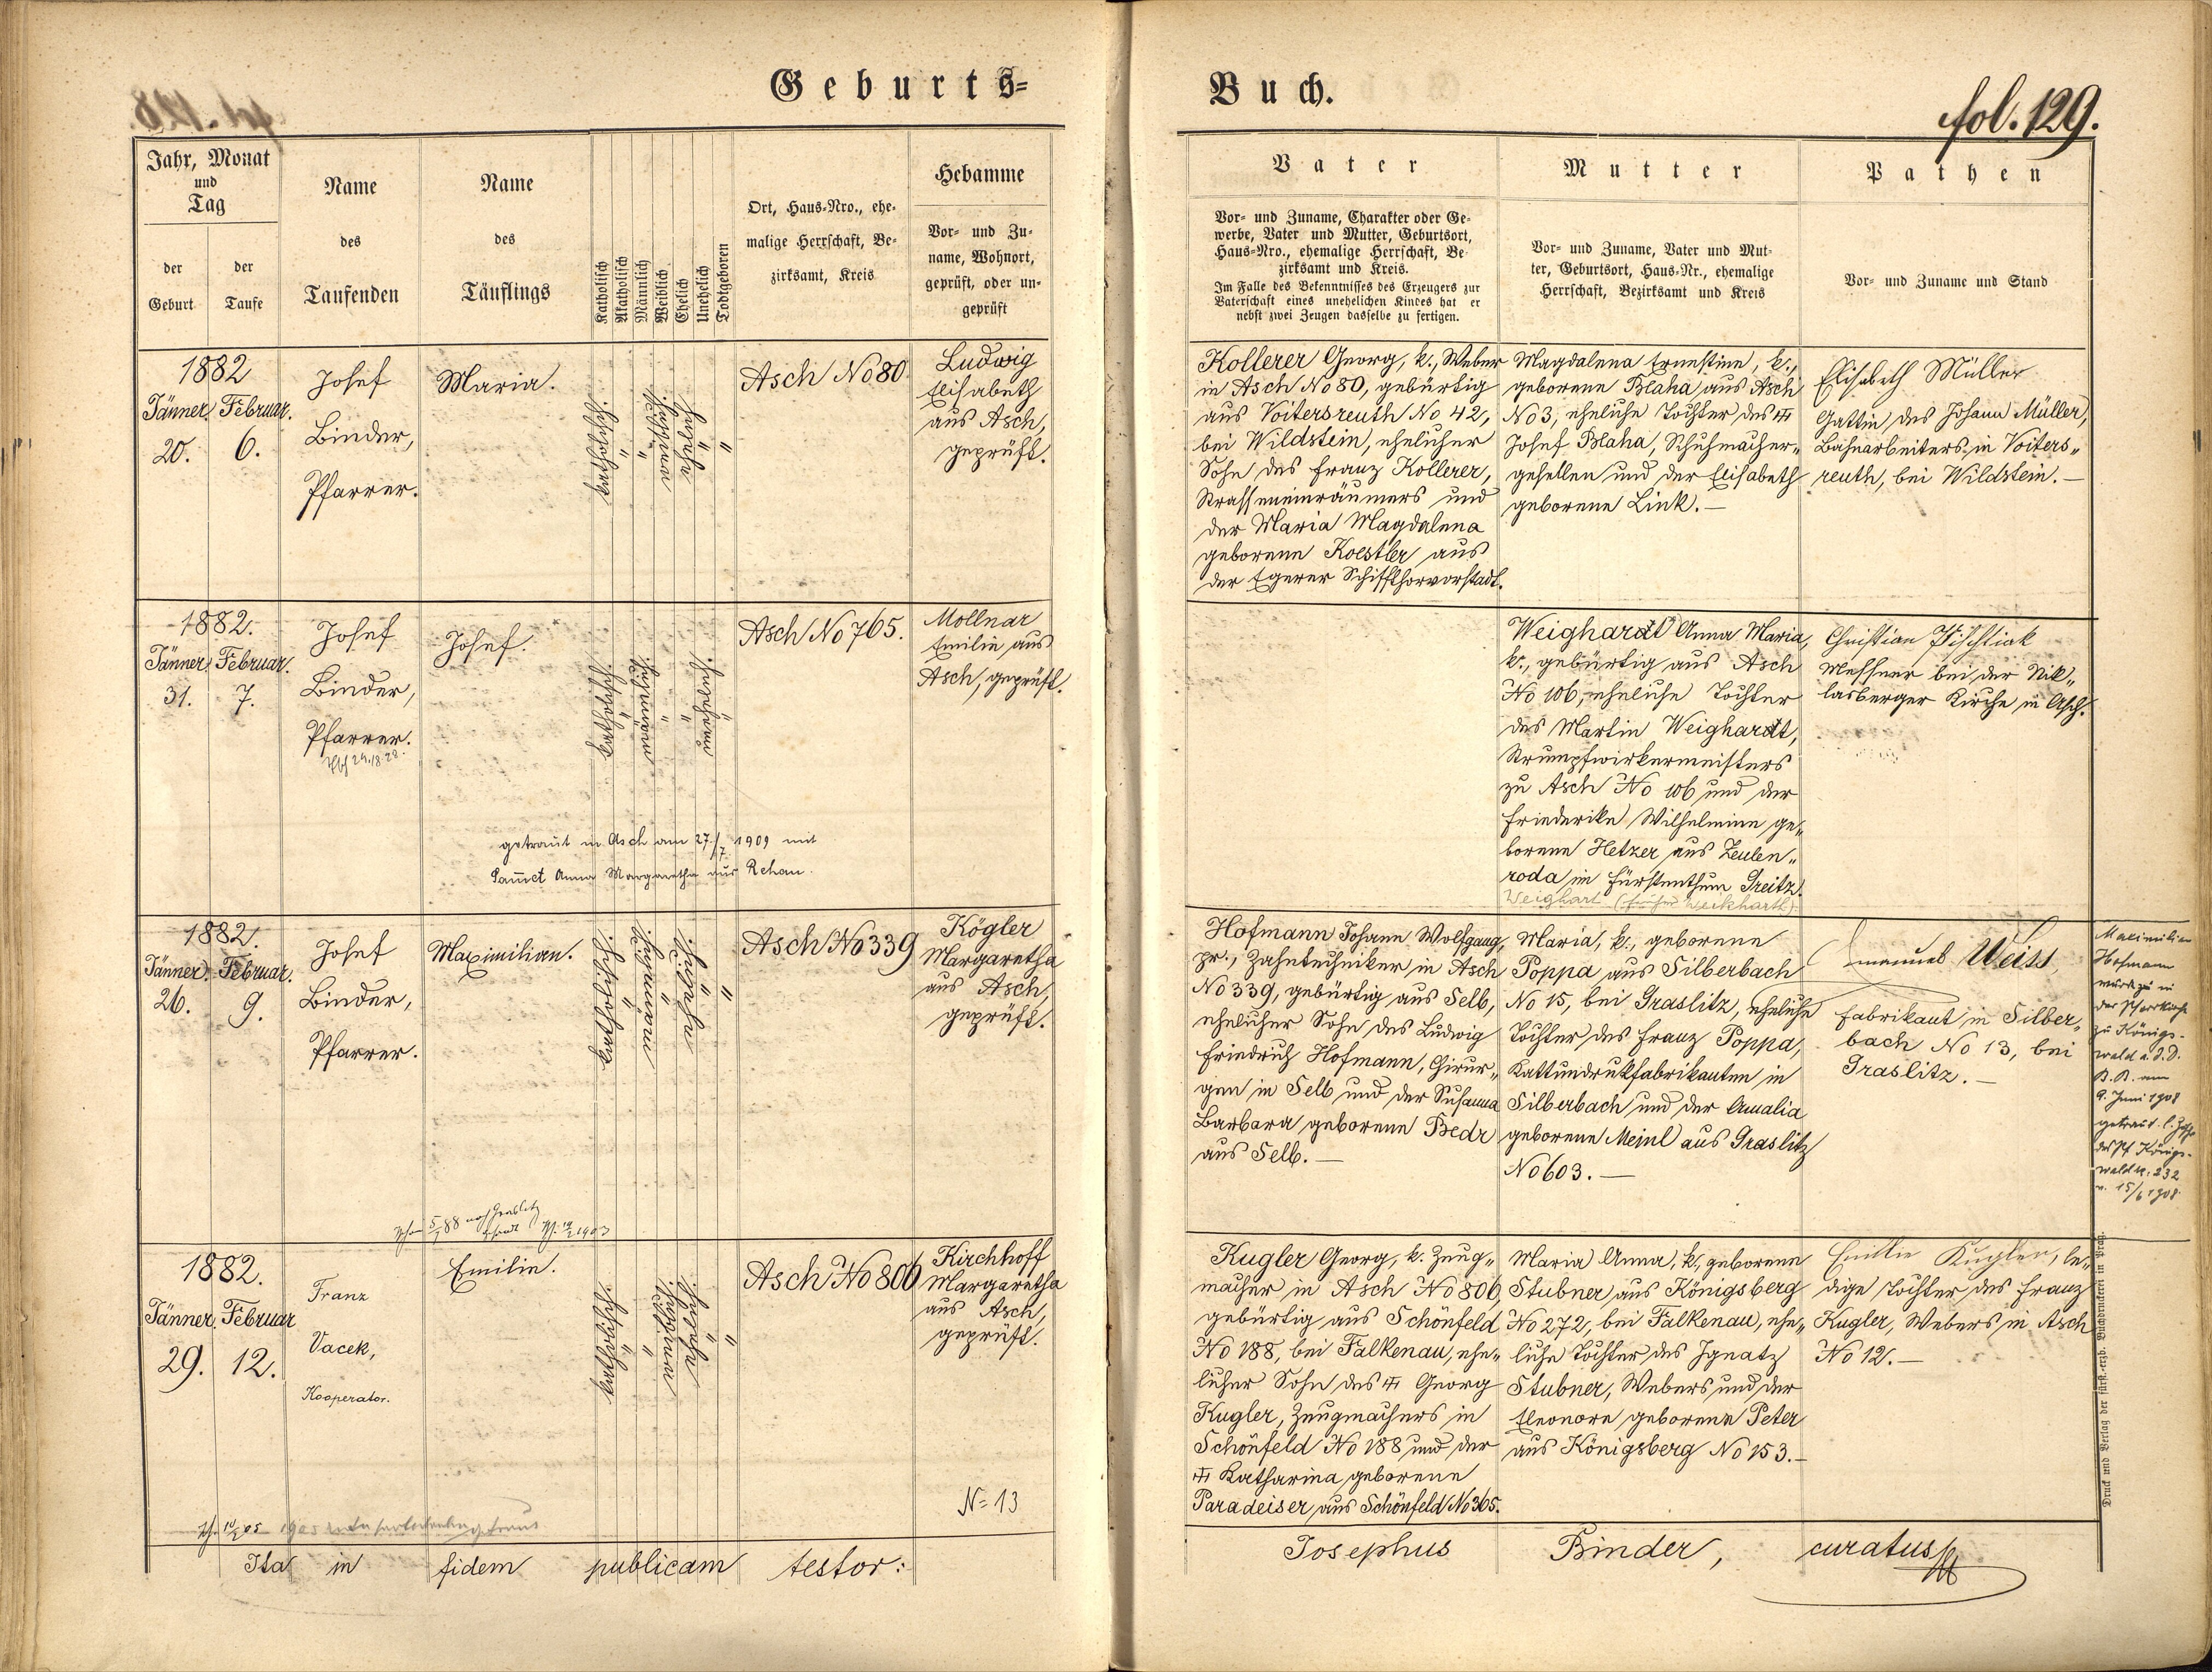 Geburts=
Buch.
fol. 129.
Jahr, Monat
und
Tag
der
Geburt
der
Taufe
Name
des
Taufenden
Name
des
Täuflings
Katholisch
Akatholisch
Männlich
Weiblich
Ehelich
Unehelich
Todtgeboren
Ort, Haus-Nro., ehe-
malige Herrschaft, Be-
zirksamt, Kreis
Hebamme
Vor- und Zu-
name, Wohnort,
geprüft, oder un-
geprüft
Vater
Vor- und Zuname, Charakter oder Ge-
werbe, Vater und Mutter, Geburtsort,
Haus-Nro., ehemalige Herrschaft, Be-
zirksamt und Kreis.
Im Falle des Bekenntnisses des Erzeugers zur
Vaterschaft eines unehelichen Kindes hat er
nebst zwei Zeugen dasselbe zu fertigen.
Mutter
Vor- und Zuname, Vater und Mut-
ter, Geburtsort, Haus-Nr., ehemalige
Herrschaft, Bezirksamt und Kreis
Pathen
Vor- und Zuname und Stand
1882
Jänner Februar.
20. 6.
Josef
Binder,
Pfarrer.
Maria.
katholisch
"
"
weiblich
"
Asch No 80
Ludwig
Elisabeth
aus Asch,
geprüft.
Kollerer Georg, k., Weber
in Asch No 80, gebürtig
aus Voitersreuth No 42,
bei Wildstein, ehelicher
Sohn des Franz Kollerer,
Strasseneinräumers und
der Maria Magdalena
geborene Koestler aus
der Egerer Schiffthorvorstadt.
Magdalena Ernestine, k.,
geborene Blaha aus Asch
No 3, eheliche Tochter des ✝
Josef Blaha, Schuhmacher-
gesellen und der Elisabeth
geborene Link. —
Elisabeth Müller
Gattin des Johann Müller,
Bahnarbeiters in Voiters-
reuth, bei Wildstein. —
1882.
Jänner Februar.
31. 7.
Josef
Binder,
Pfarrer.
Josef.
katholisch
"
männlich
"
"
unehelich
"
Asch No 765.
Mollnar
Emilie aus
Asch, geprüft.
Weighardt Anna Maria,
k., gebürtig aus Asch
No 106, eheliche Tochter
des Martin Weighardt,
Strumpfwirkermeisters
zu Asch No 106 und der
Friederike Wilhelmine ge-
borene Hetzer aus Zeulen-
roda im Fürstenthum Greitz.
Weighart
Christian
Messner bei der Nik-
lasberger Kirche in Asch.
getraut in Asch am 27./7. 1909 mit
Anna Margaretha aus Rehau.
1882.
Jänner Februar.
26. 9.
Josef
Binder,
Pfarrer.
Maximilian.
katholisch
"
männlich
"
ehelich
"
Asch No 339
Kögler
Margaretha
aus Asch,
geprüft.
Hofmann Johann Wolfgang,
pr., Zahntechniker in Asch
No 339, gebürtig aus Selb,
ehelicher Sohn des Ludwig
Friedrich Hofmann, Chirur-
gen in Selb und der Susanna
Barbara geborene Bedr
aus Selb. —
Maria, k., geborene
Poppa aus Silberbach
No 15, bei Graslitz, eheliche
Tochter des Franz Poppa,
Kattundrukfabrikanten in
Silberbach und der Amalia
geborene Meinl aus Graslitz
No 603. —
Emanuel Weiss,
Fabrikant in Silber-
bach No 13, bei
Graslitz. —
Maximilian
Hofmann
wurde in
der Pfarrkirche
zu Königs-
wald
am
9. Juni 1908
getraut.
Königs-
wald 232
15/6 1908
1882.
Jänner. Februar
29. 12.
Franz
Vacek,
Kooperator.
Emilie.
katholisch
"
"
weiblich
ehelich
"
Asch No 806
Kirchhoff
Margaretha
aus Asch,
geprüft.
N= 13
Kugler Georg, k. Zeug-
macher in Asch No 806,
gebürtig aus Schönfeld
No 188, bei Falkenau, ehe-
licher Sohn des ✝ Georg
Kugler, Zeugmachers in
Schönfeld No 188 und der
✝ Katharina geborene
Paradeiser aus Schönfeld No 365.
Maria Anna, k., geborene
Stubner aus Königsberg
No 272, bei Falkenau, ehe-
liche Tochter des Ignatz
Stubner, Webers und der
Eleonore geborene Peter
aus Königsberg No 153. —
Emilie Kugler, le-
dige Tochter des Franz
Kugler, Webers in Asch
No 12. —
Ita in fidem publicam testor:
Josephus Binder, curatus
Druck und Verlag der fürst.-erzb. Buchdruckerei in Prag.